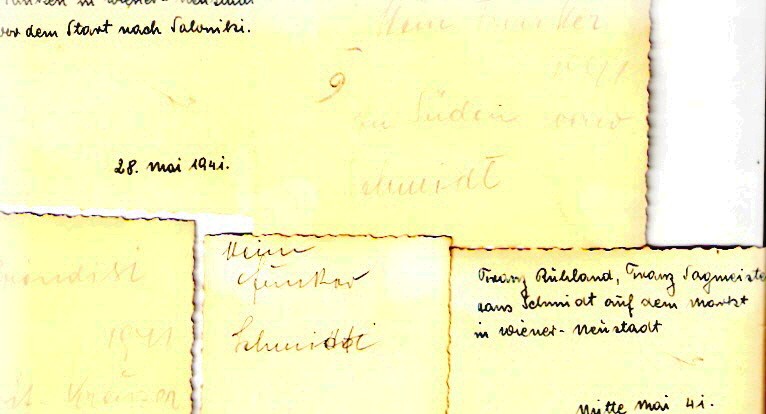 in Wiener-Neustadt
vor dem Start nach Saloniki.
28. Mai 1941.
Mein Funker
1941
9
Süden
Schmidt
1941
Mein
Funker
Schmidt
Franz Rühland, Franz Sagmeiste
Hans Schmidt auf dem Markt
in Wiener-Neustadt
Mitte Mai 41.